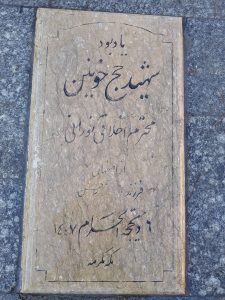 یادبود
شهید حج خونین
محترم اخلاقی نورانی
فرزند
۶ ذیحجه الحرام ۱۴۰۷
مکه مکرمه